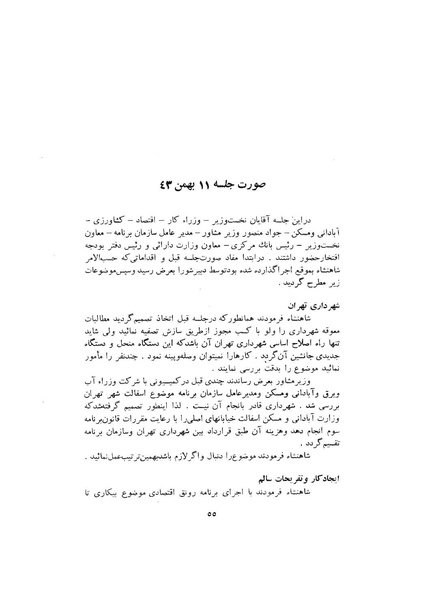 صورت جلسه ۱۱ بهمن ۴۳
دراین جلسه آقایان نخست‌وزیر – وزراء کار – اقتصاد – کشاورزی –
آبادانی ومسکن – جواد منصور وزیر مشاور – مدیر عامل سازمان برنامه – معاون
نخست‌وزیر – رئیس بانک مرکزی – معاون وزارت دارائی و رئیس دفتر بودجه
افتخارحضور داشتند . درابتدا مفاد صورت‌جلسه قبل و اقداماتی‌که حسب‌الامر
شاهنشاه بموقع اجراگذارده شده بودتوسط دبیرشورا بعرض رسید وسپس‌موضوعات
زیر مطرح گردید .
شهرداری تهران
شاهنشاه فرمودند همانطورکه درجلسه قبل اتخاذ تصمیم‌گردید مطالبات
معوقه شهرداری را ولو با کسب مجوز ازطریق سازش تصفیه نمائید ولی شاید
تنها راه اصلاح اساسی شهرداری تهران آن باشدکه این دستگاه منحل و دستگاه
جدیدی جانشین آن‌گردد . کارهارا نمیتوان وصله‌وپینه نمود . چندنفر را مأمور
نمائید موضوع را بدقت بررسی نمایند .
وزیرمشاور بعرض رساندند چندی قبل درکمیسیونی با شرکت وزراء آب
وبرق وآبادانی ومسکن ومدیرعامل سازمان برنامه موضوع اسفالت شهر تهران
بررسی شد . شهرداری قادر بانجام آن نیست . لذا اینطور تصمیم گرفته‌شدکه
وزارت آبادانی و مسکن اسفالت خیابانهای اصلی‌را با رعایت مقررات قانون‌برنامه
سوم انجام دهد وهزینه آن طبق قرارداد بین شهرداری تهران وسازمان برنامه
تقسیم‌گردد .
شاهنشاه فرمودند موضوع‌را دنبال واگرلازم باشدبهمین‌ترتیب‌عمل‌نمائید .
ایجادکار وتفریحات سالم
شاهنشاه فرمودند با اجرای برنامه رونق اقتصادی موضوع بیکاری تا
۵۵